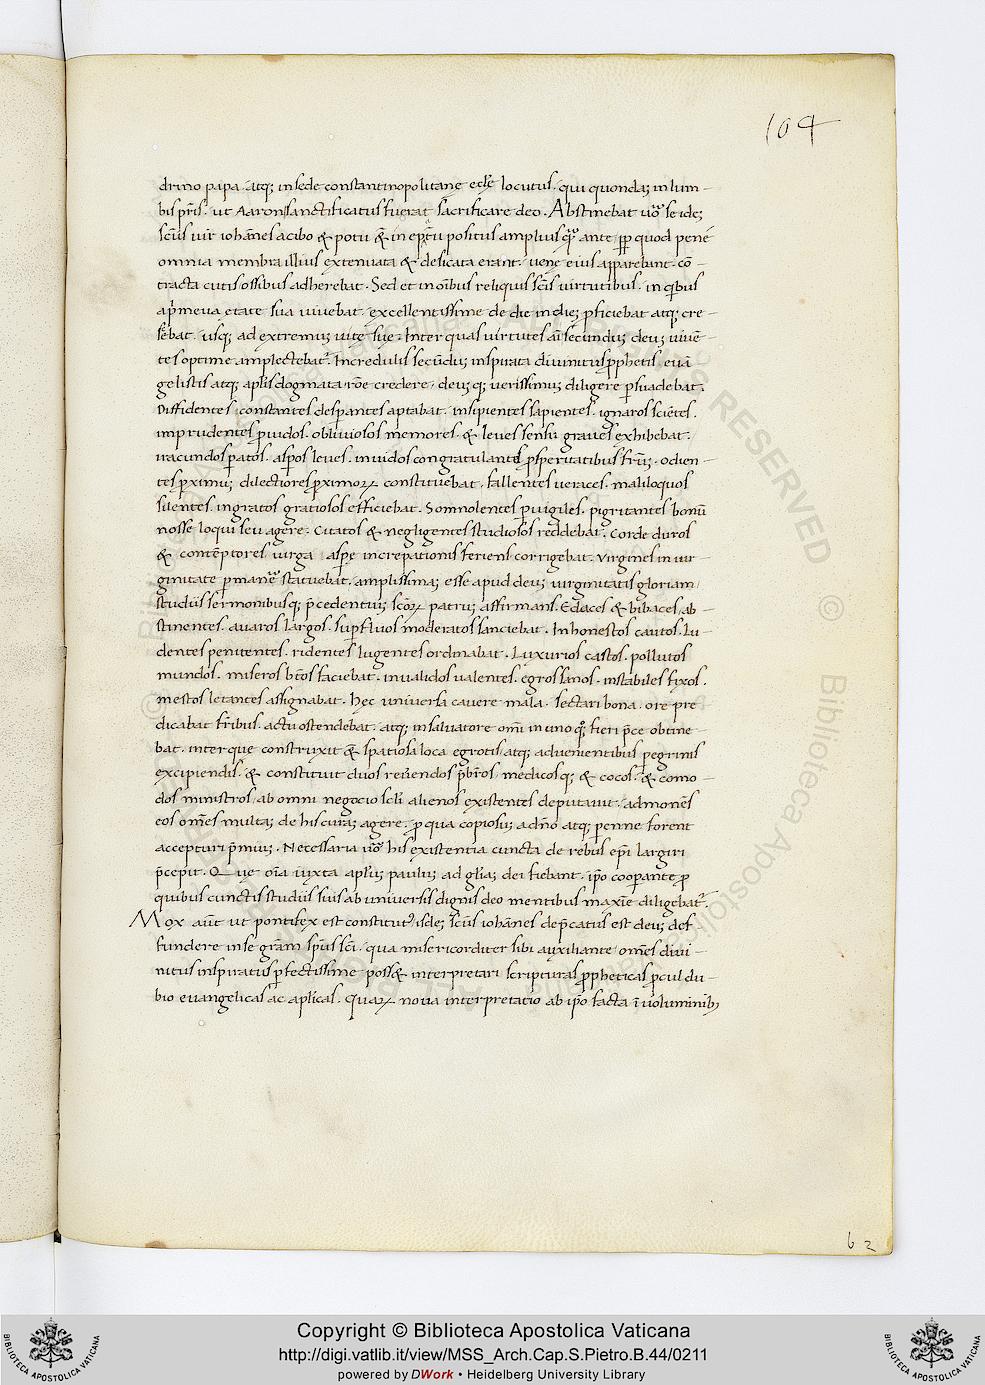 104
drino papa. atq; in sede constantinopolitane ecclę locutus. qui quondaʒ in lum-
bis pr̄is. ut Aaron sanctificatus fuerat sacrificare deo. Abstinebat ũo se ideʒ
sc̄us uir iohan̄es a cibo & potu & in ep̄atu positus amplius qȝ ante. ꝓp quod penè
omnia membra illius extenuata & desicata erant. uenę eius apparebant. cō-
tracta cutis ossibus adherebat. Sed et in oībus reliquis sc̄is uirtutibus. in quibus
a primeua etate sua uiuebat. excellentissime de die in dieʒ ꝓficiebat atq; cre-
scebat. usq; ad extremuʒ uitę suę. Inter quas uirtutes
tes optime amplectebat̄. Incredulis secundus inspirata diuinitus ꝓphetis. euā
gelistis atq; apl̄is dogmata credere. deuʒ q; uerissimuʒ diligere ꝑsuadebat.
Diffidentes constantes desꝑantes aptabat. insipientes sapientes. ignaros sciētes.
imprudentes ꝓuidos. obliuiosos memores. & leues sensu graues exhibebat.
iracundos asꝑos leues. inuidos congratulantes ꝓsperitatibus fr̄uʒ. odien-
tes ꝓximuʒ dilectores ꝓximoꝝ constituebat. fallentes ueraces. maliloquos
silentes. ingratos gratiosos efficiebat. Somnolentes ꝑuigiles. pigritantes bonū
nosse loqui seu agere. Citatos & negligentes studiosos reddebat. Corde duros
& contēptores uirga asꝑę increpationis feriens corrigebat. uirgines in uir
ginitate ꝑmanē statuebat. amplissimaʒ esse apud deuʒ uirginitatis gloriam
studiis sermonibusq; p̄cedentiuʒ sc̄oꝝ patruʒ affirmans. Edaces & bibaces, ab-
stinentes. auaros largos. suꝑfluos moderatos sanciebat. Inhonestos cautos. lu-
dentes penitentes. ridentes lugentes ordinabat. Luxurios castos. pollutos
mundos. miseros b̄tos faciebat. inualidos ualentes. egros sanos. instabiles fixos.
mestos letantes assignabat. hęc uniuersa cauere mala. sectari bona. ore pre
dicabat fr̄ibus. actu ostendebat. atq; in saluatore om̄i in uno qȝ fieri p̄ce obtine-
bat. inter que construxit & spatiosa loca egrotis. atq; aduenientibus ꝑegrinis
excipiendis. & constituit duos reuerendos p̄b̄ros, medicosq; & cocos. & como-
dos ministros, ab omni negocio sc̄li alienos existentes deputauit. admonēs
eos om̄es multaʒ de his curaʒ agere. ꝓ qua copiosuʒ a dn̄o atq; ꝑenne forent
accepturi p̄miuʒ. Necessaria ũo his existentia cuncta de rebus ep̄i largiri
p̄cepit. Quę oīa iuxta apl̄uʒ pauluʒ ad gl̄iaʒ dei fiebant. ip̄o cooꝑante ꝓ
quibus cunctis studiis suis ab uniuersis dignis deo mentibus maxīe diligebat̄.
Mox aūt ut pontifex est constitutus ideʒ sc̄us iohān̄es dep̄catus est deuʒ def
fundere in se gr̄am sp̄us sc̄i. qua misericorditer sibi auxiliante om̄es diui-
nitus inspiratus ꝑfectissime poss& interpretari scripturas ꝓpheticas ꝓcul du-
bio euangelicas ac apl̄icas. Quaꝝ noua interpretatio ab ip̄o facta ī uoluminibȝ
b 2
Copyright © Biblioteca Apostolica Vaticana
http://digi.vatlib.it/view/MSS_Arch.Cap.S.Pietro.B.44/0211
powered by DWork • Heidelberg University Library